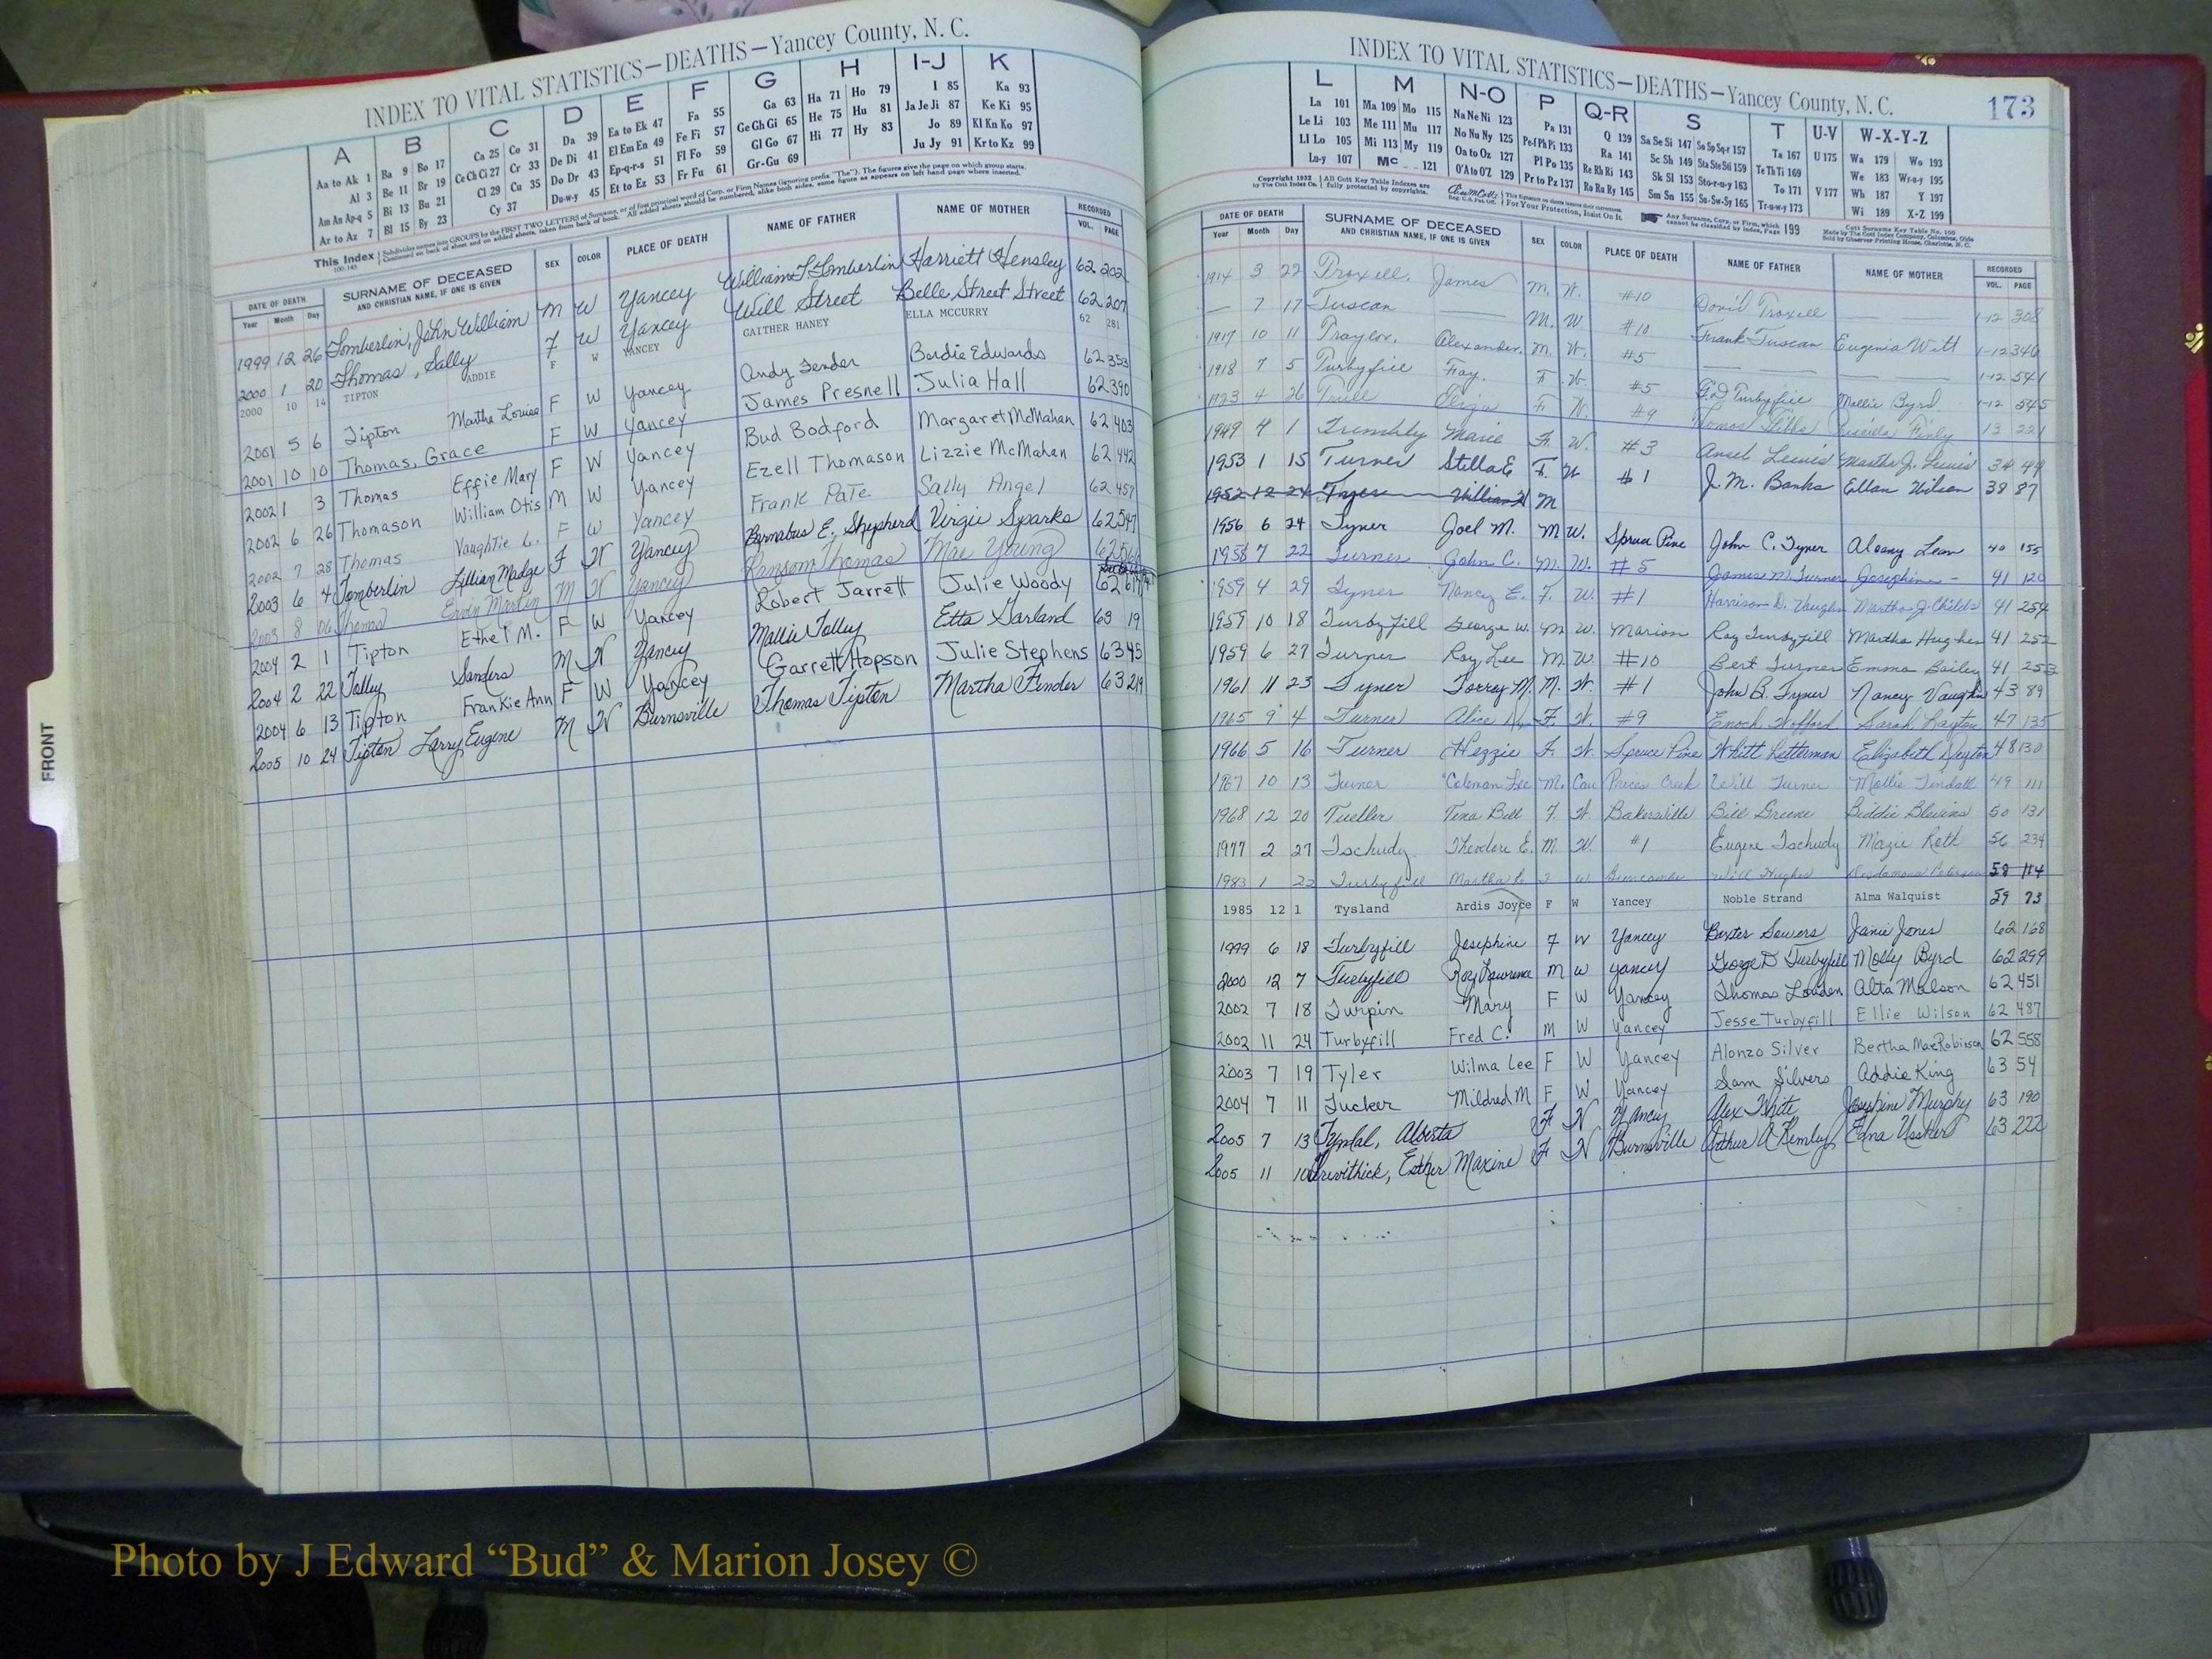 INDEX TO VITAL STATISTICS—DEATHS—Yancey County, N. C.
A B C D E F G H I-J K
Aa to Ak 1 Ba 9 Bo 17 Ca 25 Co 31 Da 39 Ea to Ek 47 Fa 55 Ga 63 Ha 71 Ho 79 I 85 Ka 93
Al 3 Be 11 Br 19 Ce Ch Ci 27 Cr 33 De Di 41 El Em En 49 Fe Fi 57 Ge Gh Gi 65 He 75 Hu 81 Ja Je Ji 87 Ke Ki 95
Am An Ap-q 5 Bi 13 Bu 21 Cl 29 Cu 35 Do Dr 43 Ep-q-r-s 51 Fl Fo 59 Gl Go 67 Hi 77 Hy 83 Jo 89 Kl Kn Ko 97
Ar to Az 7 Bl 15 By 23 Cy 37 Du-w-y 45 Et to Ez 53 Fr Fu 61 Gr-Gu 69 Ju Jy 91 Kr to Kz 99
This Index Subdivides names into GROUPS by the FIRST TWO LETTERS of Surname, or of first principal word of Corp. or Firm Names (ignoring prefix "The"). The figures give the page on which group starts.
Continued on back of sheet and on added sheets, taken from back of book. All added sheets should be numbered, alike both sides, same figure as appears on left hand page where inserted.
DATE OF DEATH SURNAME OF DECEASED SEX COLOR PLACE OF DEATH NAME OF FATHER NAME OF MOTHER RECORDED
Year Month Day AND CHRISTIAN NAME, IF ONE IS GIVEN VOL. PAGE
1999 12 26 Tomberlin, John William M W Yancey William T Tomberlin Harriett Hensley 62 202
2000 1 20 Thomas, Sally F W Yancey Will Street Belle Street Street 62 207
2000 10 14 TIPTON ADDIE F W YANCEY GAITHER HANEY ELLA MCCURRY 62 281
2001 5 6 Tipton Martha Louise F W Yancey Andy Fender Bordie Edwards 62 353
2001 10 10 Thomas, Grace F W Yancey James Presnell Julia Hall 62 390
2002 1 3 Thomas Effie Mary F W Yancey Bud Bodford Margaret McMahan 62 403
2002 6 26 Thomason William Otis M W Yancey Ezell Thomason Lizzie McMahan 62 442
2002 7 28 Thomas Vaughtie L. F W Yancey Frank Pate Sally Angel 62 457
2003 6 4 Tomberlin Lillian Madge F W Yancey Barnabus E. Shepherd Virgie Sparks 62 547
2003 8 06 Thomas Ervin Martin M W Yancey Ransom Thomas Mae Young
2004 2 1 Tipton Ethel M. F W Yancey Robert Jarrett Julie Woody
2004 2 22 Tolley Sanders M W Yancey Mallie Tolley Etta Garland 63 19
2004 6 13 Tipton Frankie Ann F W Yancey Garrett Hopson Julie Stephens 63 45
2005 10 24 Tipton Larry Eugene M W Burnsville Thomas Tipton Martha Fender 63 219
FRONT
INDEX TO VITAL STATISTICS—DEATHS—Yancey County, N. C. 173
L M N-O P Q-R S T U-V W-X-Y-Z
La 101 Ma 109 Mo 115 Na Ne Ni 123 Pa 131 Q 139 Sa Se Si 147 So Sp Sq-r 157 Ta 167 U 175 Wa 179 Wo 193
Le Li 103 Me 111 Mu 117 No Nu Ny 125 Pe-f Ph Pi 133 Ra 141 Sc Sh 149 Sta Ste Sti 159 Te Th Ti 169 We 183 Wr-u-y 195
Ll Lo 105 Mi 113 My 119 Oa to Oz 127 Pl Po 135 Re Rh Ri 143 Sk Sl 153 Sto-r-u-y 163 To 171 V 177 Wh 187 Y 197
Lu-y 107 Mc 121 O'A to O'Z 129 Pr to Pz 137 Ro Ru Ry 145 Sm Sn 155 Su-Sw-Sy 165 Tr-u-w-y 173 Wi 189 X-Z 199
Copyright 1932 by The Cott Index Co. All Cott Key Table Indexes are fully protected by copyrights. For Your Protection, Insist On It. Any Surname, Corp. or Firm, which cannot be classified by Index, Page 199
Cott Surname Key Table No. 100 Made by The Cott Index Company, Columbus, Ohio Sold by Observer Printing House, Charlotte, N. C.
DATE OF DEATH SURNAME OF DECEASED SEX COLOR PLACE OF DEATH NAME OF FATHER NAME OF MOTHER RECORDED
Year Month Day AND CHRISTIAN NAME, IF ONE IS GIVEN VOL. PAGE
1914 3 22 Troxell, James M. W. #10 David Troxell 1-12 308
— 7 17 Tuscan M. W #10 Frank Tuscan Eugenia Witt 1-12 346
1917 10 11 Traylor, Alexander. M. W. #5 1-12 541
1918 7 5 Turbyfice Fay. F. W. #5 G.D. Turbyfice Mollie Byrd 1-12 545
1923 4 26 Trull F. W. #9 13 221
1949 4 1 Trembly Marie F. W. #3 Ansel Lewis Martha J. Lewis 34 49
1953 1 15 Turner Stella E F. W #1 J. M. Banks Ellan Wilson 38 87
1952 12 24 William M
1956 6 24 Tyner Joel M. M W. Spruce Pine John C. Tyner Aloany Lean 40 155
1958 7 22 Turner John C. M. W. #5 James M. Turner Josephine - 41 120
1959 4 29 Tyner Nancy E. F. W. #1 Harrison D. Vaughn Martha J. Childs 41 254
1959 10 18 Turbyfill George W. M W. Marion Roy Turbyfill Martha Hughes 41 252
1959 6 27 Turner Roy Lee M W. #10 Bert Turner Emma Bailey 41 253
1961 11 23 Tyner Torrey M. M. W. #1 John B. Tyner Nancy Vaughn 43 89
1965 9 4 Turner Alice F. W. #9 Enoch Wofford Sarah Layton 47 135
1966 5 16 Turner Hezzie F. W. Spruce Pine Whitt Letterman Elizabeth Deyton 48 130
1967 10 13 Turner Coleman Lee M. Cau Prices Creek Will Turner Mollie Tindall 49 111
1968 12 20 Tueller Tena Bell F. W. Bakersville Bill Greene Biddie Blevins 50 131
1977 2 27 Tschudy Theodore E. M. W. #1 Eugene Tschudy Mazie Roth 56 234
1983 1 22 Turbyfill Martha F W Buncombe Will Hughes 58 114
1985 12 1 Tysland Ardis Joyce F W Yancey Noble Strand Alma Walquist 59 73
1999 6 18 Turbyfill Josephine F W Yancey Baxter Sowers Janie Jones 62 168
2000 12 7 Turbyfill Roy Lawrence M W Yancey George D Turbyfill Molly Byrd 62 299
2002 7 18 Turpin Mary F W Yancey Thomas Louden Alta Malson 62 451
2002 11 24 Turbyfill Fred C. M W Yancey Jesse Turbyfill Ellie Wilson 62 487
2003 7 19 Tyler Wilma Lee F W Yancey Alonzo Silver Bertha Mae Robinson 62 558
2004 7 11 Tucker Mildred M F W Yancey Sam Silvers Addie King 63 54
2005 7 13 Tyndal, Alberta F W Yancey Alex White Josephine Murphy 63 190
2005 11 10 Trevithick, Esther Maxine F W Burnsville Arthur A Remley Edna Ussher 63 222
Photo by J Edward “Bud” & Marion Josey ©